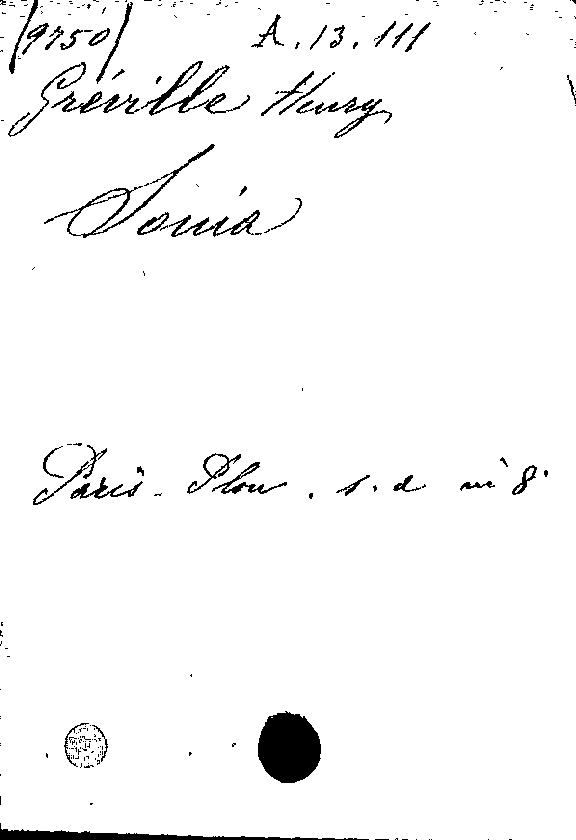 (9750) A.13.111
Gréville Henry
Sonia
Paris - Plon . s. d in 8°